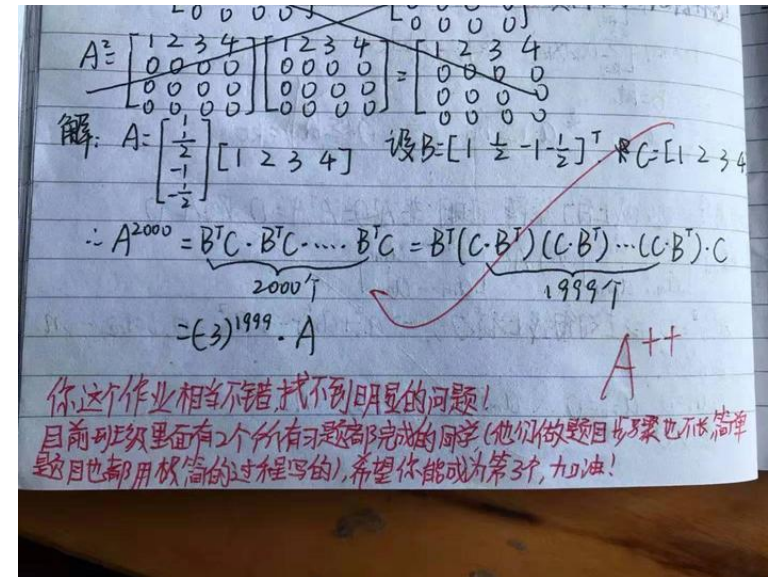 0 0 0 0] 0 0 0 0]
A²=[1 2 3 4 [1 2 3 4 =[1 2 3 4
0 0 0 0 0 0 0 0 0 0 0 0
0 0 0 0 0 0 0 0 0 0 0 0
0 0 0 0] 0 0 0 0] 0 0 0 0
解: A=[1 1/2 -1 -1/2] [1 2 3 4] 设B=[1 1/2 -1 -1/2]ᵀ. C=[1 2 3 4
∴ A²⁰⁰⁰ = BᵀC · BᵀC ····· BᵀC = Bᵀ(C·Bᵀ)(C·Bᵀ)···(C·Bᵀ)·C
2000个 1999个
=(-3)¹⁹⁹⁹ · A
A⁺⁺
你这个作业相当不错,找不到明显的问题!
目前班级里面有2个所有习题都完成的同学(他们做题目步骤也不长,简单
题目也都用极简的过程写的),希望你能成为第3个,加油!